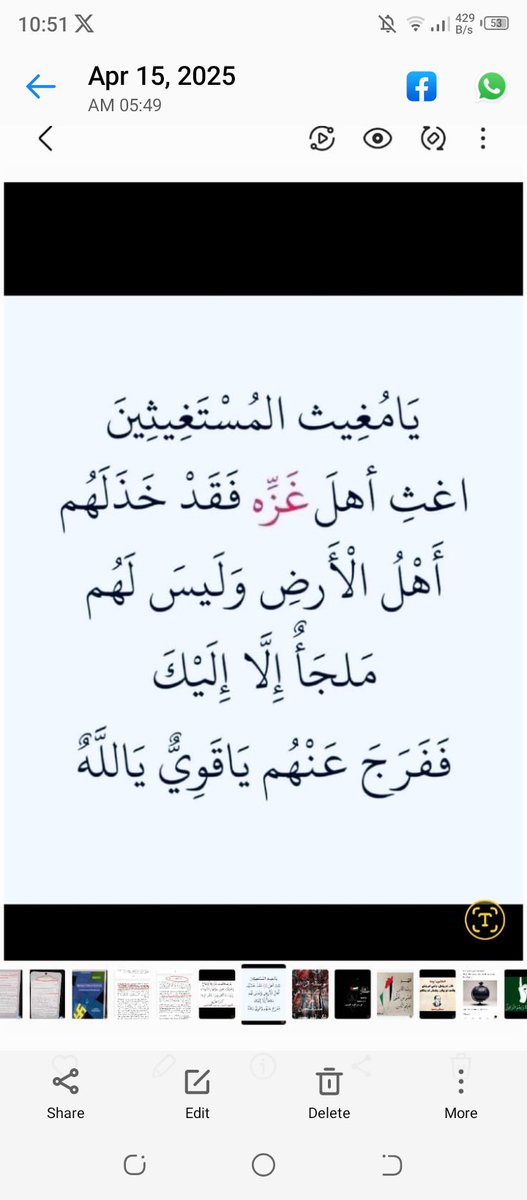 10:51 X
429 B/s 53
Apr 15, 2025
AM 05:49
يَامُغِيث المُسْتَغِيثِينَ
اغثِ أهلَ غَزِّه فَقَدْ خَذَلَهُم
أَهْلُ الْأَرضِ وَلَيسَ لَهُم
مَلجَأٌ إِلَّا إِلَيْكَ
فَفَرَجَ عَنْهُم يَاقَوِيٌّ يَاللَّهٌ
T
Share Edit Delete More